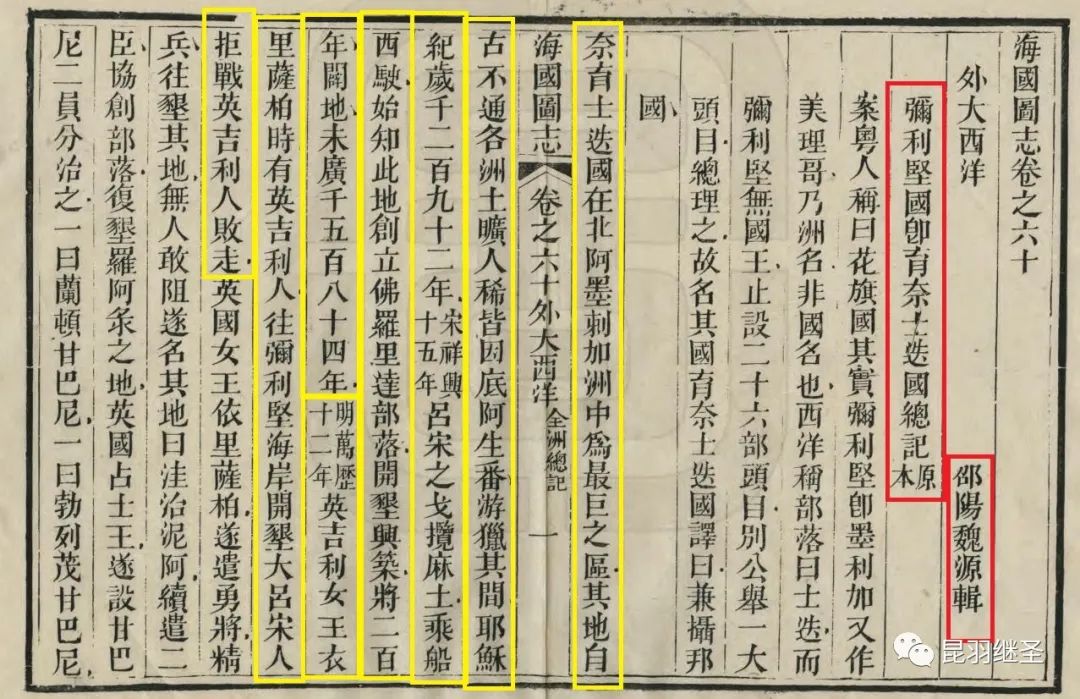 海國圖志卷之六十
外大西洋
邵陽魏源輯
彌利堅國卽育奈士迭國總記原本
案粵人稱曰花旗國其實彌利堅卽墨利加又作
美理哥乃洲名非國名也西洋稱部落曰士迭而
彌利堅無國王止設二十六部頭目別公舉一大
頭目總理之故名其國育奈士迭國譯曰兼攝邦
國
奈育士迭國在北阿墨剌加洲中爲最巨之區其地自
海國圖志 卷之六十外大西洋 全洲總記 一
古不通各洲土曠人稀皆因底阿生番游獵其間耶穌
紀歲千二百九十二年宋祥興十五年呂宋之戈攬麻士乘船
西駛始知此地創立佛羅里達部落開墾興築將二百
年闢地未廣千五百八十四年明萬歷十二年英吉利女王衣
里薩柏時有英吉利人往彌利堅海岸開墾大呂宋人
拒戰英吉利人敗走英國女王依里薩柏遂遣勇將精
兵往墾其地無人敢阻遂名其地曰洼治泥阿續遣二
臣協創部落復墾羅阿氽之地英國占士王遂設甘巴
尼二員分治之一曰蘭頓甘巴尼一曰勃列茂甘巴尼
昆羽继圣